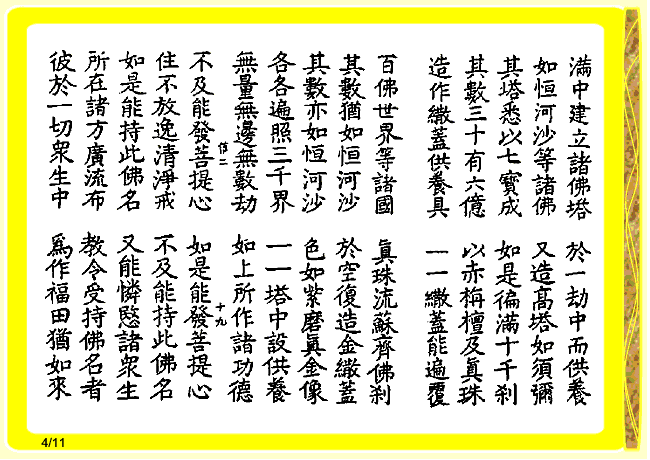 滿中建立諸佛塔　於一劫中而供養
如恒河沙等諸佛　又造高塔如須彌
其塔悉以七寶成　如是徧滿十千刹
其數三十有六億　以赤栴檀及眞珠
造作繖蓋供養具　一一繖蓋能遍覆
百佛世界等諸國　眞珠流蘇齊佛刹
其數猶如恒河沙　於空復造金繖蓋
其數亦如恒河沙　色如紫磨眞金像
各各遍照三千界　一一塔中設供養
無量無邊無數劫　如上所作諸功德
二　十九
不及能發菩提心　如是能發菩提心
住不放逸清淨戒　不及能持此佛名
如是能持此佛名　又能憐愍諸衆生
所在諸方廣流布　教令受持佛名者
彼於一切衆生中　爲作福田猶如來
4/11